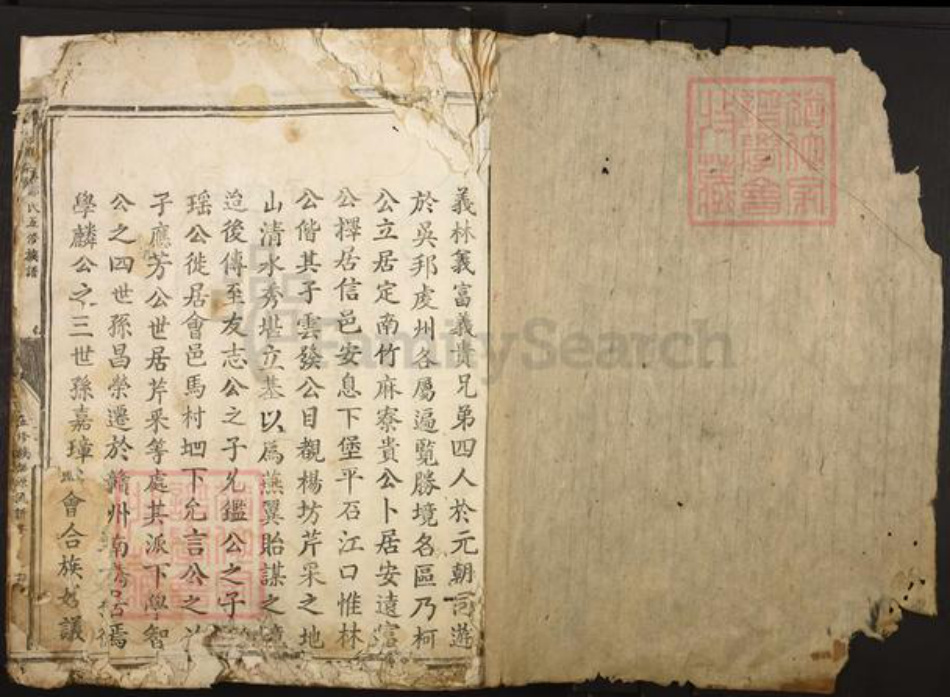 義林義富義貴兄弟四人於元朝同遊
於吳邦虔州各屬遍覽勝境名區乃柯
公立居定南竹麻寮貴公卜居安遠富
公擇居信邑安息下堡平石江口惟林
公偕其子雲發公目覩楊坊芹菜之地
山清水秀堪立基以為燕翼貽謀之
迨後傳至友志公之子允鑑公之子
瑶公徙居會邑馬村坝下允言公之
子應芳公世居芹菜等處其派下學智
公之四世孫昌榮遷於贛州南 焉
學麟公之三世孫嘉璋 會合族 議
氏五修族譜
FamilySearch